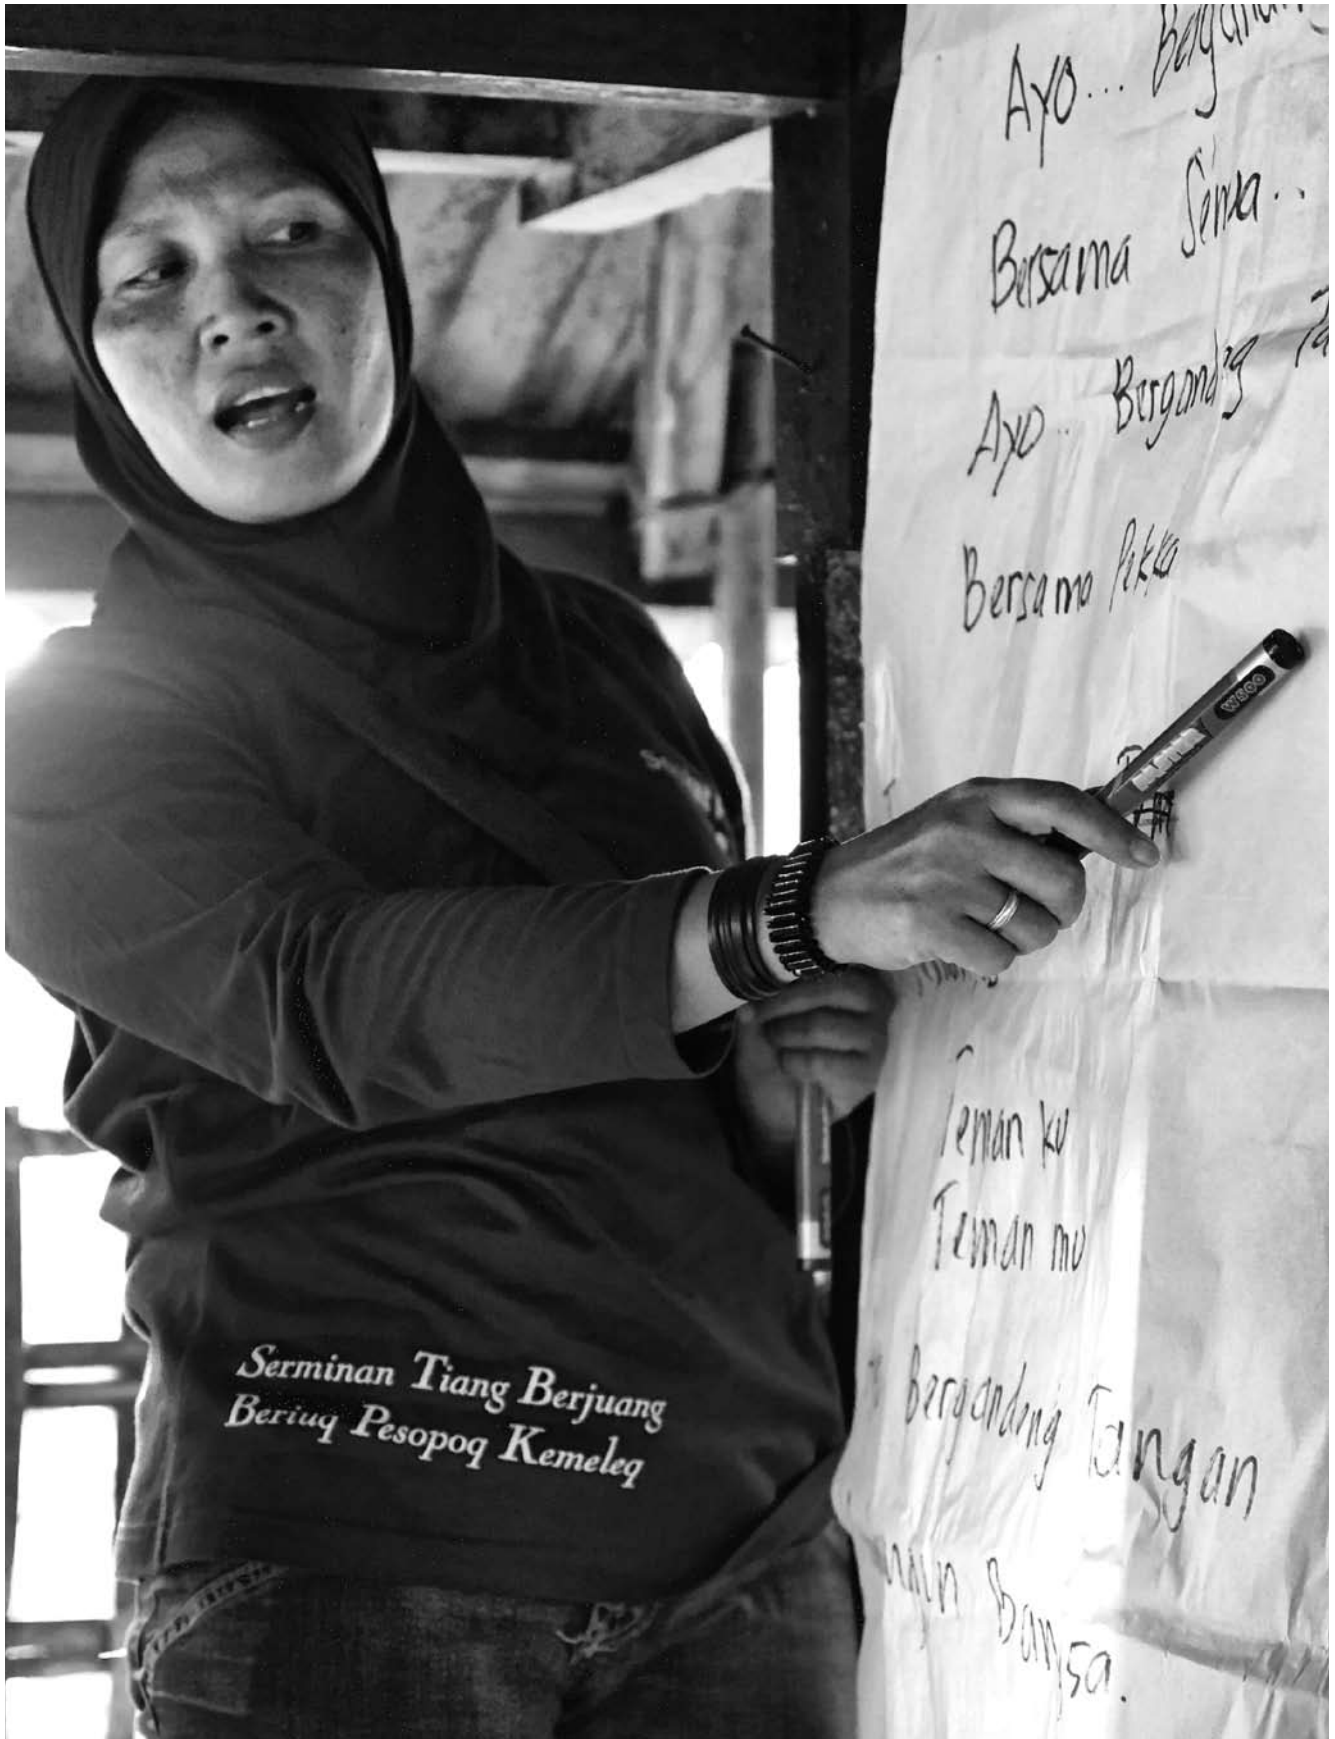 Ayo...
Bersama Semua..
Ayo.. Bergandeng
Bersama Pekka
W500
Teman ku
Teman mu
Bergandeng Tangan
Bangsa.
Serminan Tiang Berjuang
Beriuq Pesopoq Kemeleq